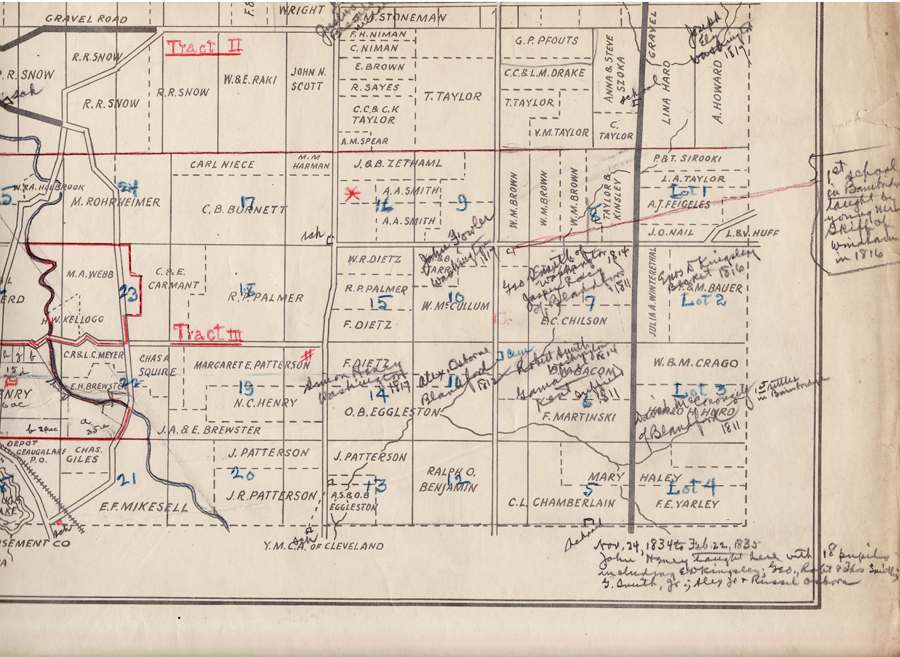 GRAVEL ROAD
WRIGHT
M. STONEMAN
R.R. SNOW
Tract II
F.H. NIMAN
C. NIMAN
G. P. PFOUTS
ANNA & STEVE SZOKA
GRAVEL
Joseph
Ely
Washington
1817
R. SNOW
W. & E. RAKI
JOHN N.
SCOTT
E. BROWN
C.C. & L.M. DRAKE
LINA HARD
A. HOWARD
sch
R.R. SNOW
R.R. SNOW
R. SAYES
T. TAYLOR
T. TAYLOR
school
C.C. & C.K
TAYLOR
V.M. TAYLOR
C.
TAYLOR
A.M. SPEAR
CARL NIECE
M.M
HARMAN
J. & B. ZETHAML
P. & T. SIROOKI
1st
school
in Bainbridge
taught by
W. & A. HOLBROOK
24
M. ROHRHEIMER
17
C. B. BURNETT
16
A.A. SMITH
A.A. SMITH
9
W. M. BROWN
W. M. BROWN
W. M. BROWN
8
TAYLOR &
KINSLEY
L.A. TAYLOR
Lot 1
A.J. FEIGELES
Skiff of
Windham
in 1816
J.O. NAIL
L. & V. HUFF
sch
John Fowler
Washington
1817
M.A. WEBB
C. & E.
CARMANT
W.R. DIETZ
Geo Smith of
Washington 1814
Jasper Lacy
of Blandford
1811
JULIA A. WINTERETHAL
Enos A Kingsley
Becket 1816
F. & M. BAUER
23
18
R. A. PALMER
R. P. PALMER
15
10
W. McCULLUM
7
E.C. CHILSON
Lot 2
H. W. KELLOGG
Tract III
F. DIETZ
C.R. & L.C. MEYER
CHAS A
SQUIRE
MARGARET E. PATTERSON
F. DIETZ
Alex Osborne
Blandford
1812
11
Robert Smith
Washington 1814
W. BACON
W. & M. CRAGO
E.H. BREWSTER
22
19
N.C. HENRY
Simon Henry
Washington
1817
14
O.B. EGGLESTON
Gamaliel
Kent Suffield
1811
6
F. MARTINSKI
Lot 3
M. HURD
1st settler
in Bainbridge
David McConoughey
of Blandford
1811
J. A. & E. BREWSTER
DEPOT
GEAUGA LAKE
P.O.
CHAS.
GILES
J. PATTERSON
J. PATTERSON
RALPH O.
BENJAMIN
MARY HALEY
21
20
J.R. PATTERSON
13
A.S. & O.B
EGGLESTON
12
5
C. L. CHAMBERLAIN
Lot 4
F. E. YARLEY
E.F. MIKESELL
sch
sch
school
Y.M.C.A. OF CLEVELAND
Nov. 24, 1834 to Feb. 22, 1835
John Henry taught here with 18 pupils
including E W Kingsley; Geo., Robt & Thos Smith;
G. Smith, Jr.; Alex Jr & Russel Osborn